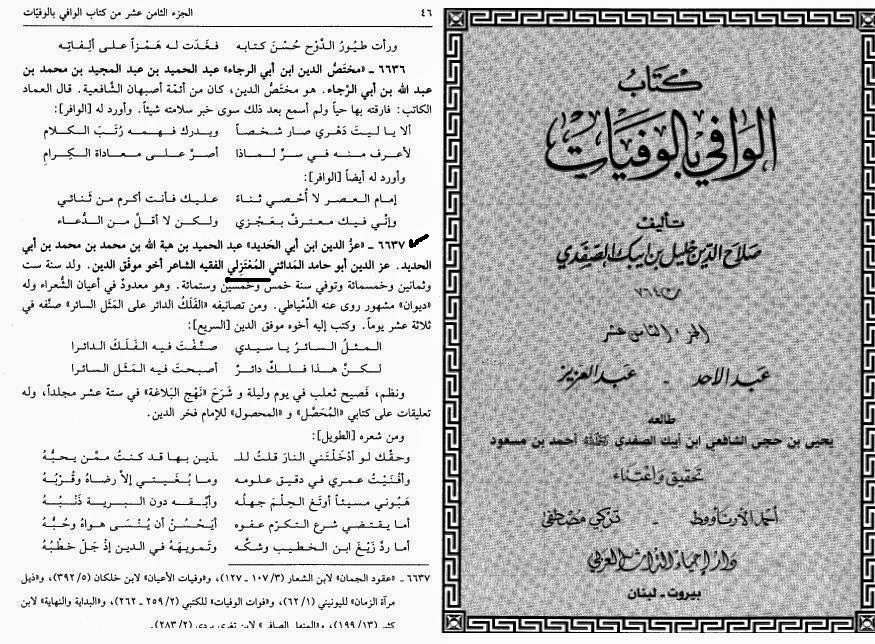 ٤٦
الجزء الثامن عشر من كتاب الوافي بالوفيات
ورأت طيُورُ الدَّوْح حُسْنَ كتابه فغَدَت له هَمْزاً على ألِفاتِه
٦٦٣٦ ـ «مختَصّ الدين ابن أبي الرجاء» عبد الحميد بن عبد المجيد بن محمد بن
عبد الله بن أبي الرَّجاء. هو مختصّ الدين، كان من أئمّة أصبهان الشَّافعية. قال العماد
الكاتب: فارقته بها حياً ولم أسمع بعد ذلك سوى خبر سلامته شيئاً. وأورد له [الوافر]:
ألا يا ليتَ دَهْري صار شخصاً ويدرك فهمه رُتَبَ الكلام
لأعرف منه في سرٍّ لماذا أصرَّ على معاداة الكِرامِ
وأورد له أيضاً [الوافر]:
إمام العصر لا أُحْصي ثناءً عليك فأنت أكرم من ثَنائي
وإنّي فيك معترفٌ بعَجْزي ولكن لا أقلَّ من الدُّعاء
٦٦٣٧ ـ «عزُّ الدين ابن أبي الحَديد» عبد الحميد بن هبة الله بن محمد بن محمد بن أبي
الحديد. عز الدين أبو حامد المَدائني المُعْتَزلي الفقيه الشاعر أخو موفّق الدين. ولد سنة ست
وثمانين وخمسمائة وتوفي سنة خمسٍ وخمسين وستمائة. وهو معدودٌ في أعيان الشُّعراء وله
«ديوان» مشهور روى عنه الدِّمياطي. ومن تصانيفه «الفَلَكُ الدائر على المَثَل السائر» صنّفه في
ثلاثة عشر يوماً. وكتب إليه أخوه موفق الدين [السريع]:
المثلُ السائرُ يا سيدي صنَّفْتَ فيه الفَلَكَ الدائرا
لكنَّ هذا فلكٌ دائرٌ أصبحتَ فيه المَثَل السائرا
ونظم، فَصيح ثعلب في يوم وليلة و شَرَحَ «نَهْج البَلاغة» في ستة عشر مجلداً، وله
تعليقات على كتابي «المُحَصَّل» و «المحصول» للإمام فخر الدين.
ومن شعره [الطويل]:
وحقّك لو أدْخَلْتَني النارَ قلتُ للـ ـلذين بها قد كنتُ ممّن يحبُّهُ
وأفْنَيْتُ عمري في دقيق علومه وما بُغْيتي إلاّ رضاهُ وقُرْبُهُ
هَبُوني مسيئاً أوتَغ الحِلْمَ جهلُه وأبْقه دون البرية ذَنْبُهُ
أما يقتضي شرع التكرّم عفوه أيَحْسُنُ أن يُنْسَى هواهُ وحُبُّهُ
أما ردّ زَيْغَ ابن الخطيب وشكَّه وتمويهَهُ في الدين إذ جَلّ خطْبُهُ
٦٦٣٧ ـ «عقود الجمان» لابن الشعار (٣/ ١٠٧ ـ ١٢٧)، و«وفيات الأعيان» لابن خلكان (٥/ ٣٩٢)، و«ذيل
مرآة الزمان» لليونيني (١/ ٦٢)، و«فوات الوفيات» للكتبي (٢/ ٢٥٩ ـ ٢٦٢)، و«البداية والنهاية» لابن
كثير (١٣/ ١٩٩)، و«المنهل الصافي» لابن تغري بردي (٢/ ٢٨٣).
كتاب
الوافي بالوفيات
تأليف
صلاح الدين خليل بن ايبك الصفدي
ت ٧٦٤
الجزء الثامن عشر
عبد الاحد - عبد العزيز
طالعه
يحيى بن حجي الشافعي ابن أيبك الصفدي أحمد بن مسعود
تحقيق واعتناء
أحمد الأرناؤوط - تركي مصطفى
دار إحياء التراث العربي
بيروت - لبنان